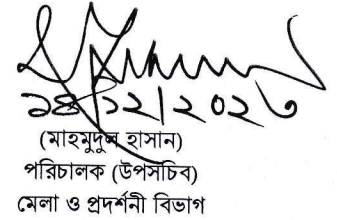 ১৪/১২/২০২৩
(মাহমুদুল হাসান)
পরিচালক (উপসচিব)
মেলা ও প্রদর্শনী বিভাগ